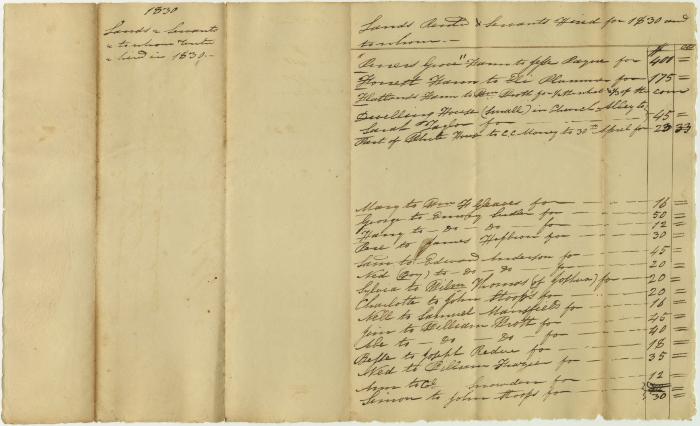 1830
Lands & Servants
to whom Rented
& hired in 1830.—
Lands Rented & Servants Hired for 1830 and
to whom.—
Grove" Farm to Payne for 400 =
Forrest Farm to Plummer for 175 =
Flatlands Farm to Wm Broth for of the corn
Dwelling House (small) in Church Alley to
Sarah Taylor for 45 =
Part of White House to C.C. Money to 30th April for 23 33
Mary to Wm H Gleaves for 16 =
George to for 50 =
Harry to — do — do — for 12 =
to James Hepbron for 30 =
Sam to Edward Anderson for 45 =
Ned (Boy) to — do — do — for 20 =
Sylvia to Thomas (of Joshua) for 20 =
Charlotte to John Stoops for 20 =
Nell to Samuel Mansfield for 16 =
Jim to William Broth for 45 =
Abe to — do — do — for 40 =
to Joseph Redue for 18 =
Ned to William Frazier for 35 =
Ann to Snowden for 12 =
Simon to John Stoops for 30 =